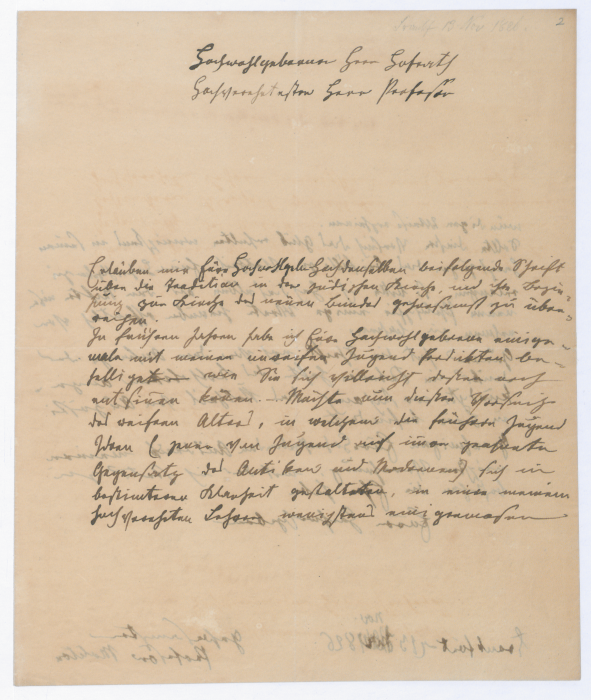 2
Hochwohlgeborner Herr Hofrath
Hochverehrtester Herr Professor
Erlauben mir Euer Hochwohlgeb. Hochdenselben beifolgende Schrift
über die Tradition in der jüdischen Kirche, und ihre Bezie-
hung zur Kirche des neuen Bundes gehorsamst zu über-
reichen.
In frühern Jahren habe ich Euer Hochwohlgeboren einige-
male mit meinen unreifen Jugend Produkten be-
helliget wie Sie sich vielleicht dessen noch
entsinnen können. Möchte nun dieser Versuch
des reifern Alters, in welchem die frühern Jugend
Ideen (jener von Jugend auf immer geahnte
Gegensatz des Antiken und Modernen) sich in
bestimterer Klarheit gestalteten, in einem meinem
hochverehrten Lehrer wenigstens einigermassen